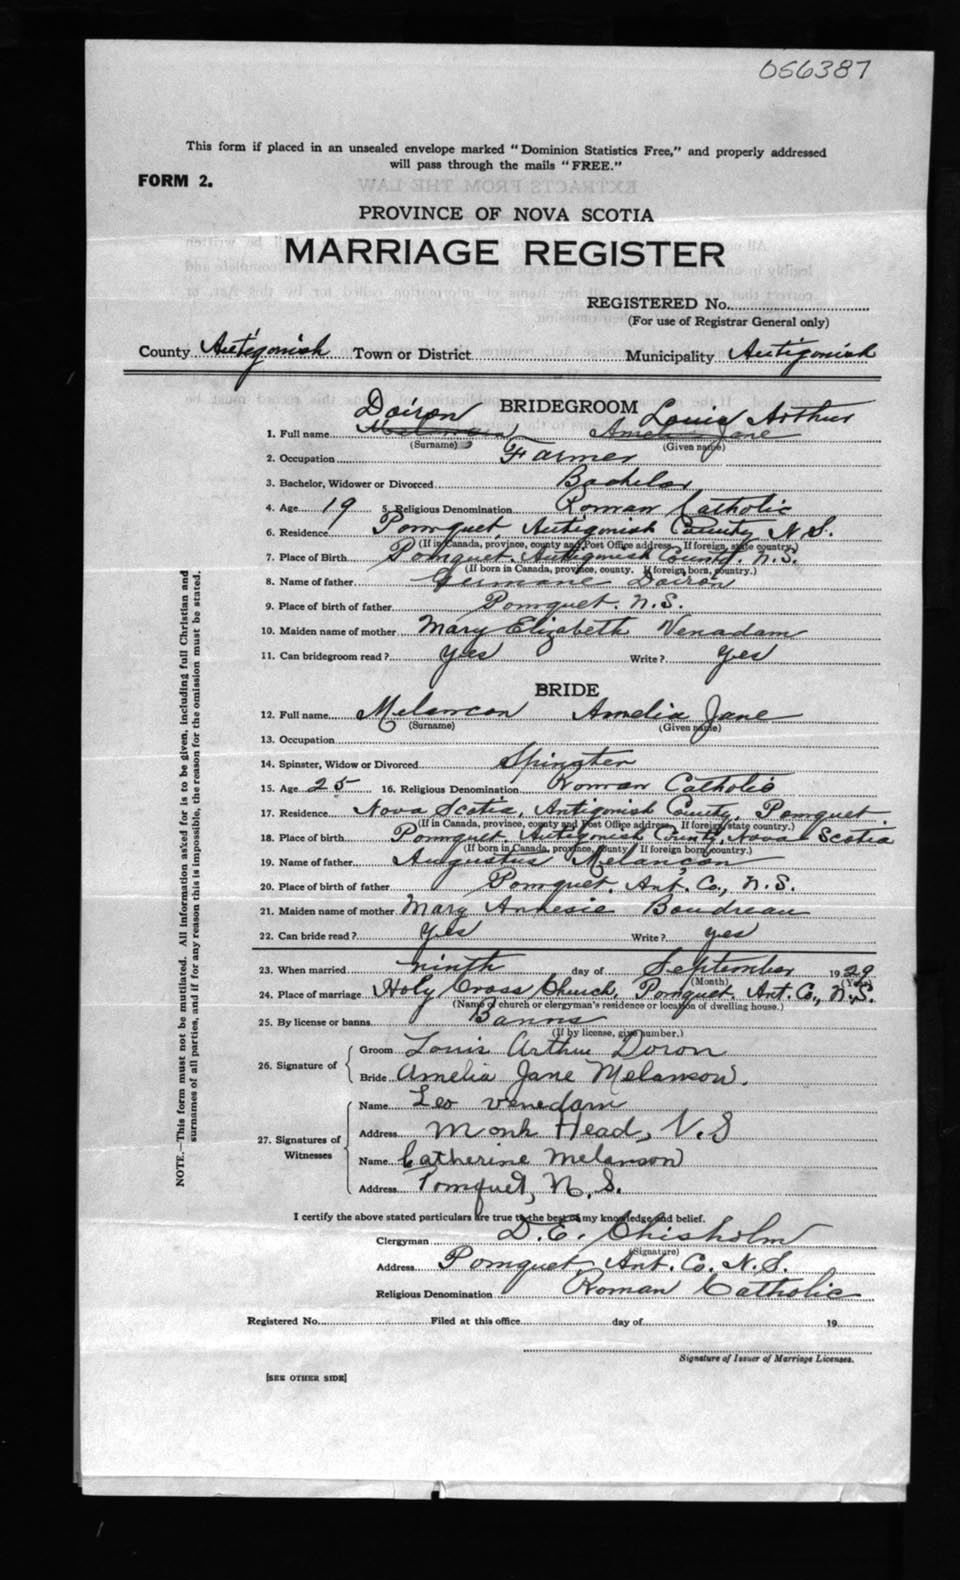 056387
This form if placed in an unsealed envelope marked "Dominion Statistics Free," and properly addressed
will pass through the mails "FREE."
FORM 2.
PROVINCE OF NOVA SCOTIA
MARRIAGE REGISTER
REGISTERED No.
(For use of Registrar General only)
County Antigonish Town or District Municipality Antigonish
BRIDEGROOM
Doiron Louis Arthur
1. Full name Melancon Amelia Jane
(Surname) (Given name)
2. Occupation Farmer
3. Bachelor, Widower or Divorced Bachelor
4. Age 19 5. Religious Denomination Roman Catholic
6. Residence Pomquet, Antigonish County N.S.
(If in Canada, province, county and Post Office address. If foreign, state country.)
7. Place of Birth Pomquet, Antigonish County, N.S.
(If born in Canada, province, county. If foreign born, country.)
8. Name of father Germane Doiron
9. Place of birth of father Pomquet. N.S.
10. Maiden name of mother Mary Elizabeth Venadam
11. Can bridegroom read? Yes Write? Yes
BRIDE
12. Full name Melancon Amelia Jane
(Surname) (Given name)
13. Occupation
14. Spinster, Widow or Divorced Spinster
15. Age 25 16. Religious Denomination Roman Catholic
17. Residence Nova Scotia, Antigonish County, Pomquet.
(If in Canada, province, county and Post Office address. If foreign, state country.)
18. Place of birth Pomquet, Antigonish County, Nova Scotia
(If born in Canada, province, county. If foreign born, country.)
19. Name of father Augustus Melançon
20. Place of birth of father Pomquet. Ant. Co., N.S.
21. Maiden name of mother Mary Boudreau
22. Can bride read? Yes Write? yes
23. When married ninth day of September 1929
(Month) (Year)
24. Place of marriage Holy Cross Church, Pomquet. Ant. Co., N.S.
(Name of church or clergyman's residence or location of dwelling house.)
25. By license or banns Banns
(If by license, give number.)
26. Signature of
Groom Louis Arthur Doron
Bride Amelia Jane Melanson.
27. Signatures of Witnesses
Name Leo Venedam
Address Monk Head, N.S
Name Catherine Melanson
Address Pomquet, N.S.
I certify the above stated particulars are true to the best of my knowledge and belief.
Clergyman D.E. Chisholm
(Signature)
Address Pomquet, Ant. Co. N.S.
Religious Denomination Roman Catholic
Registered No. Filed at this office day of 19
Signature of Issuer of Marriage Licenses.
[SEE OTHER SIDE]
NOTE.—This form must not be mutilated. All information asked for is to be given, including full Christian and
surnames of all parties, and if for any reason this is impossible, the reason for the omission must be stated.